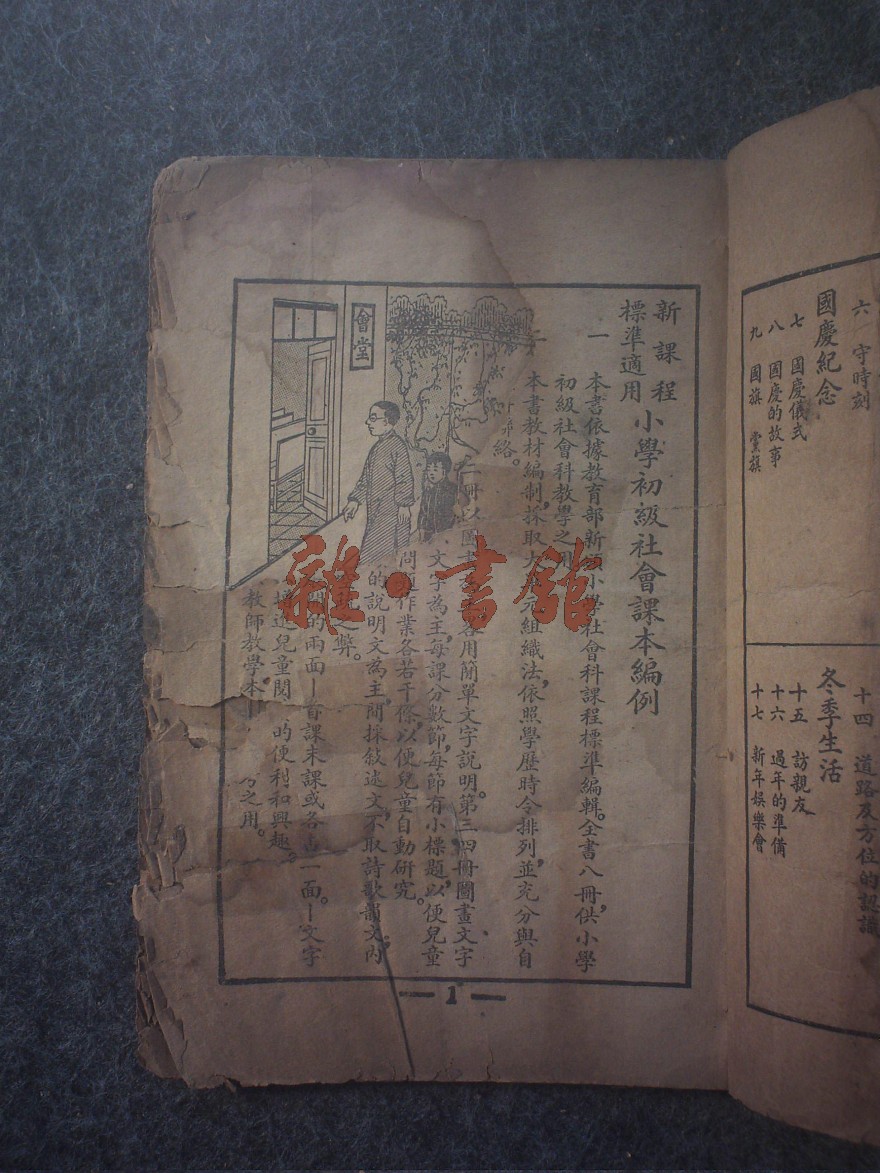 新課程
標準適用
小學初級社會課本編例
一 本書依據教育部新 小學社會科課程標準編輯。全書八冊，供小學
初級社會科教學之用
本書教材編制，採取大 元組織法，依照學歷時令排列，並充分與自
絡。
二冊以圖 用簡單文字說明。第三四冊圖畫文字
文字為主，每課分數節，每節有小標題，以便兒童
問題作業各若干條，以便兒童自動研究。
的說明文為主，間採敍述文，不取詩歌韻文，內
之弊。
的兩面—首課末課或各占一面。—文字
增進兒童閱 的便利和興趣。
教師教學本 之用。
會堂
1
六 守時刻
國慶紀念
七 國慶儀式
八 國慶的故事
九 國旗 黨旗
十四 道路及方位的認識
冬季生活
十五 訪親友
十六 過年的準備
十七 新年娛樂會
雜·書館